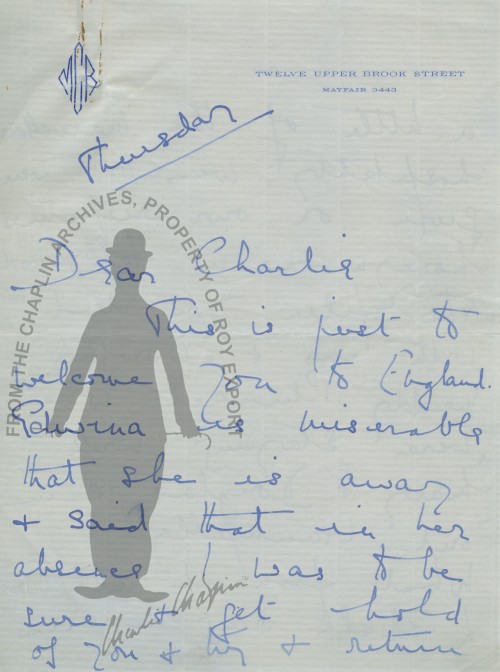 MCB
TWELVE UPPER BROOK STREET
MAYFAIR 3443
Thursday
FROM THE CHAPLIN ARCHIVES, PROPERTY OF ROY EXPORT
Dear Charlie
This is just to
welcome you to England.
Edwina is miserable
that she is away
+ said that in her
absence I was to be
sure + get hold
of you + try + return
Charlie Chaplin